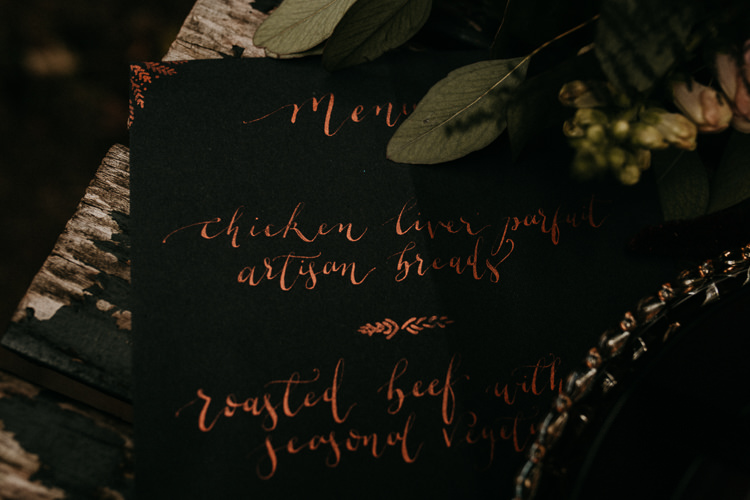 Menu
chicken liver parfait
artisan breads
roasted beef with
seasonal vegeta